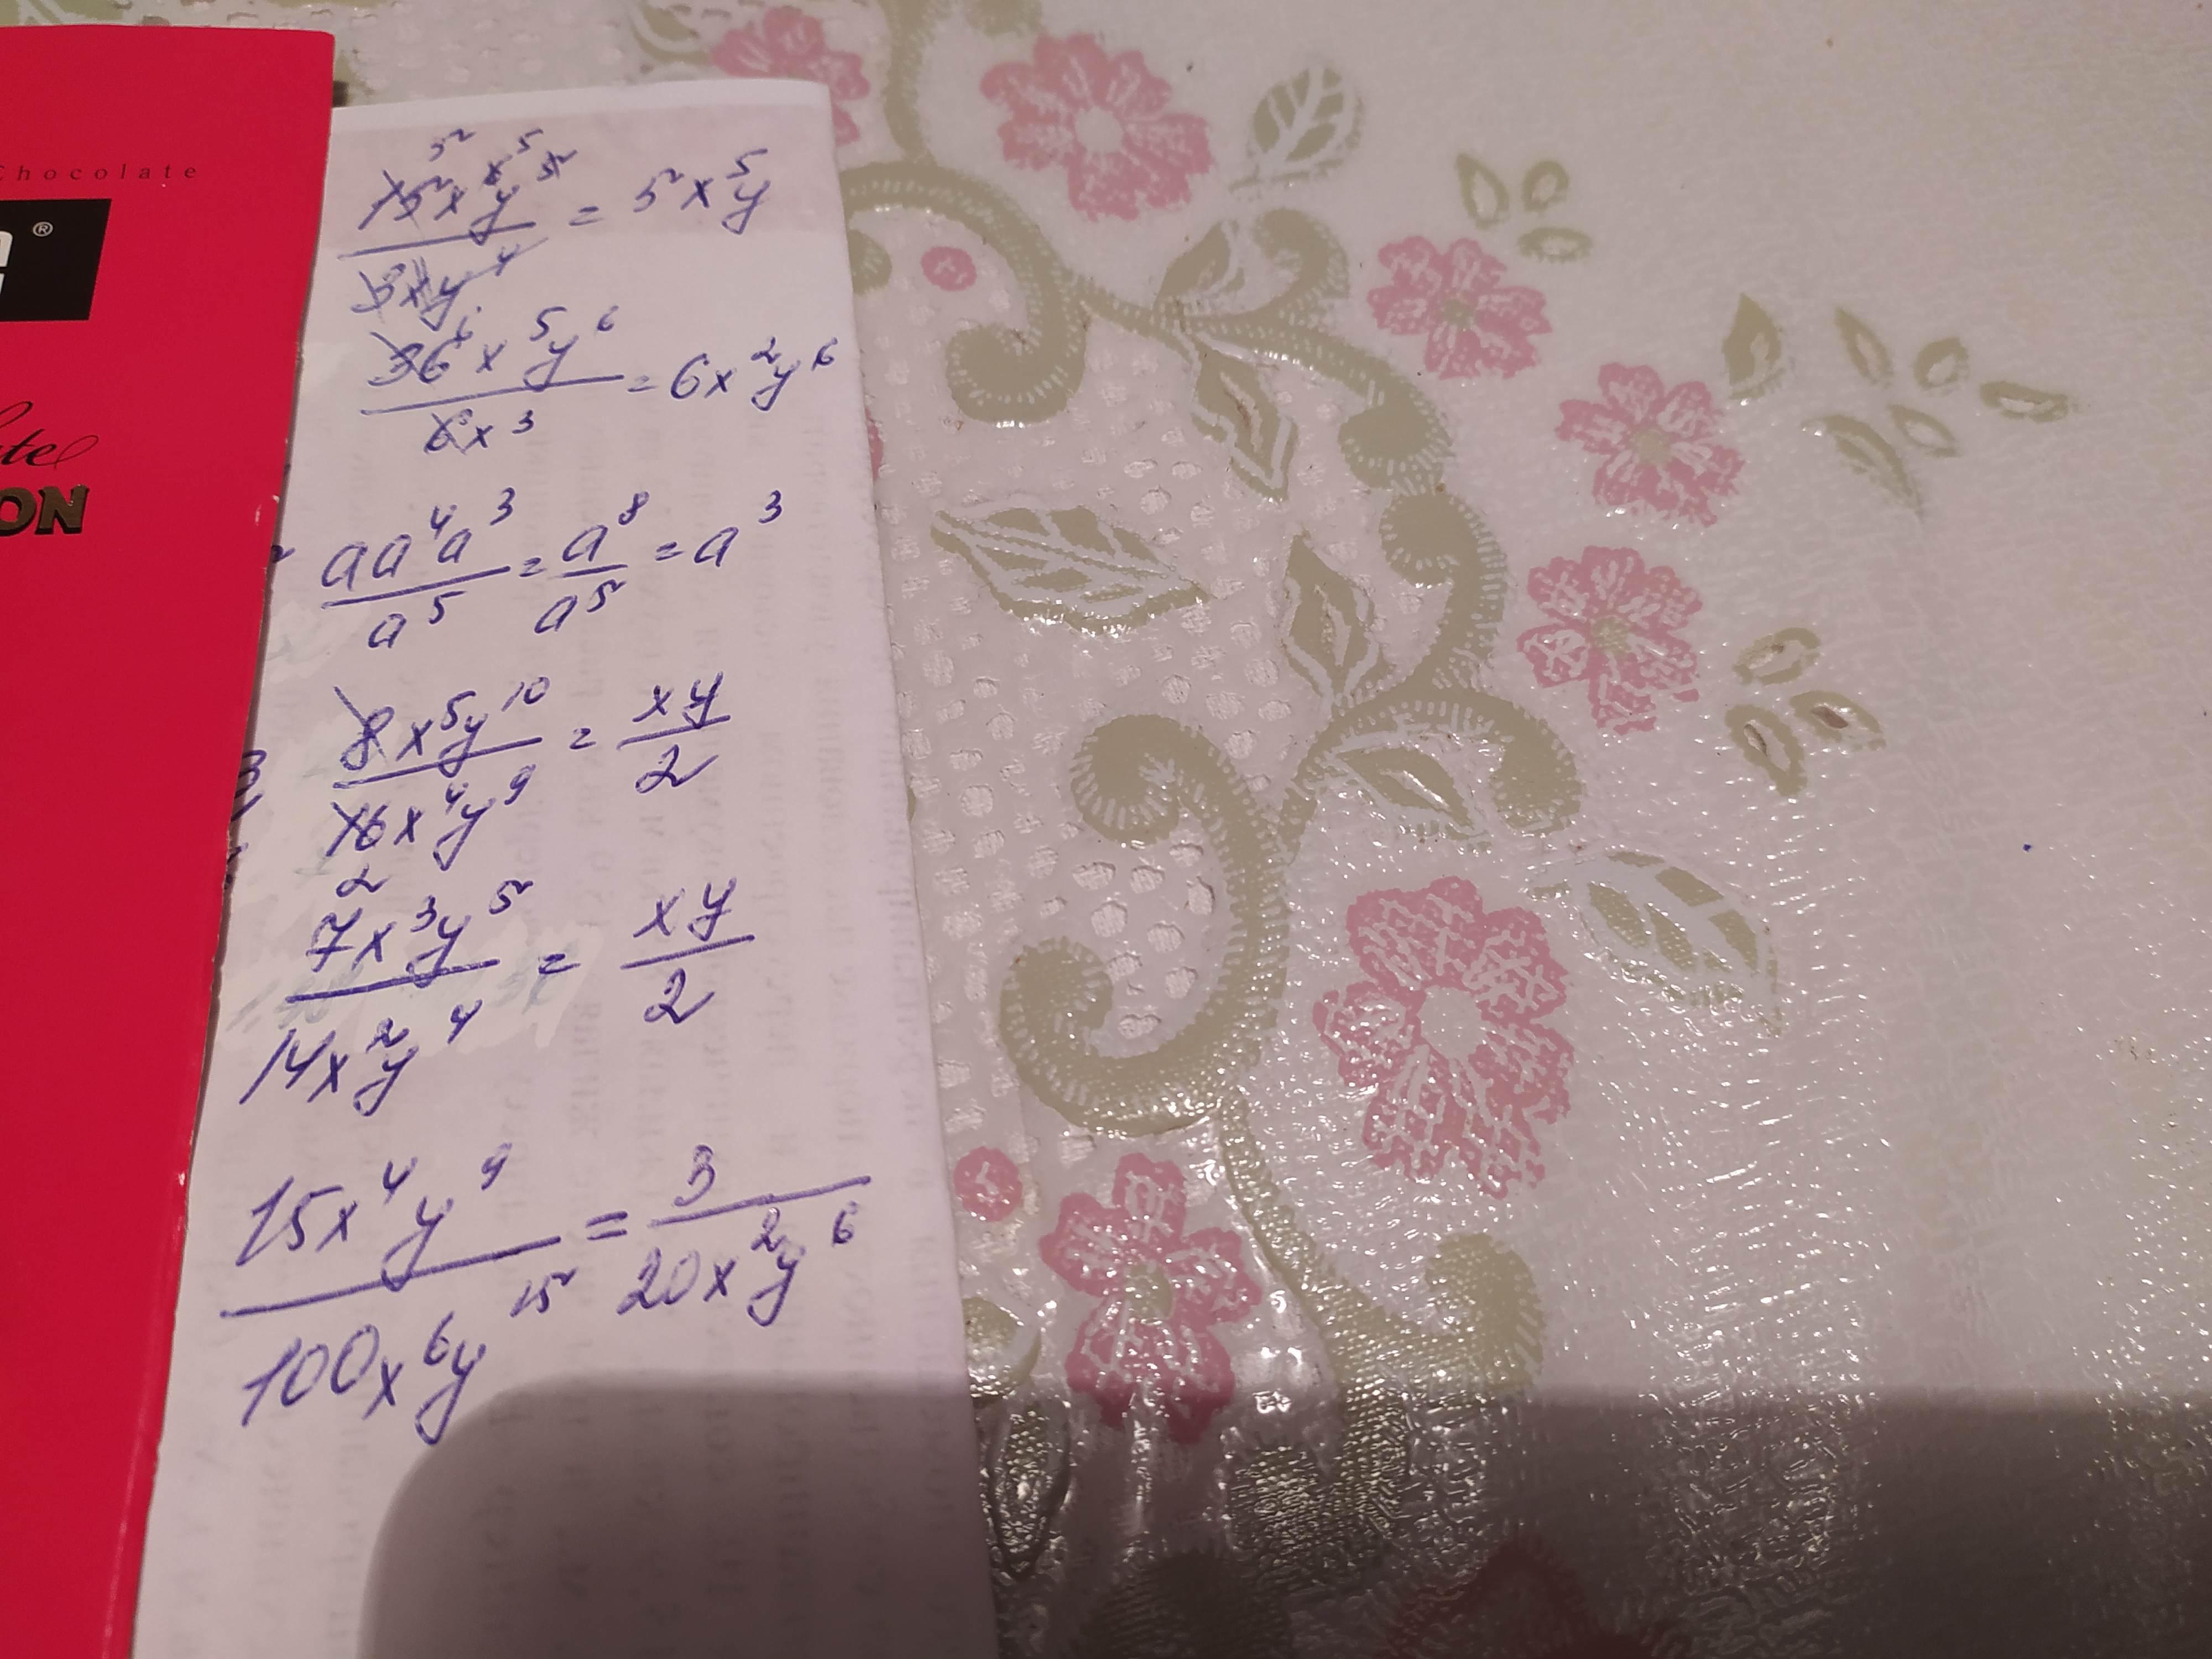 Chocolate
®
ON
15x⁶y⁵ / 3xy⁴ = 5x⁵y
36x⁵y⁶ / 6x³ = 6x²y⁶
aa⁴a³ / a⁵ = a⁸ / a⁵ = a³
8x⁵y¹⁰ / 16x⁴y⁹ = xy / 2
2
7x³y⁵ / 14x²y⁴ = xy / 2
15x⁴y⁹ / 100x⁶y¹⁵ = 3 / 20x²y⁶